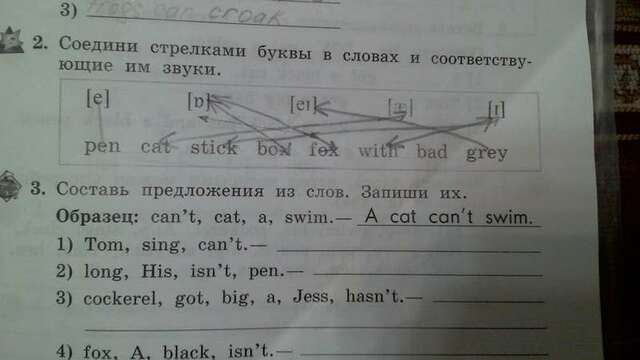 3) frogs can croak
2. Соедини стрелками буквы в словах и соответству-
ющие им звуки.
[e] [ɒ] [eɪ] [æ] [ɪ]
pen cat stick box fox with bad grey
3. Составь предложения из слов. Запиши их.
Образец: can't, cat, a, swim.— A cat can't swim.
1) Tom, sing, can't.—
2) long, His, isn't, pen.—
3) cockerel, got, big, a, Jess, hasn't.—
4) fox, A, black, isn't.—